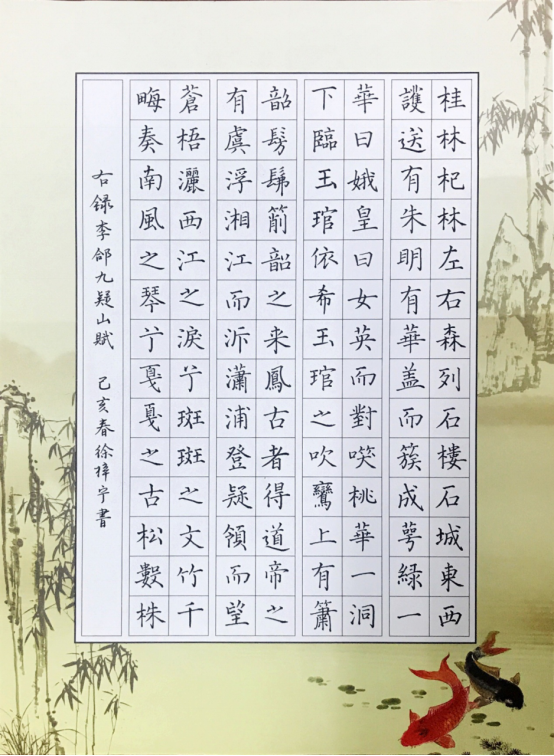 桂林杞林左右森列石樓石城東西
護送有朱明有華盖而簇成萼綠一
華曰娥皇曰女英而對咲桃華一洞
下臨玉琯依希玉琯之吹鸞上有簫
韶髣髴箾韶之来鳳古者得道帝之
有虞浮湘江而泝瀟浦登疑領而望
蒼梧灑西江之淚兮斑斑之文竹千
畮奏南風之琴兮戛戛之古松數株
右録李郃九疑山賦 己亥春徐梓宇書